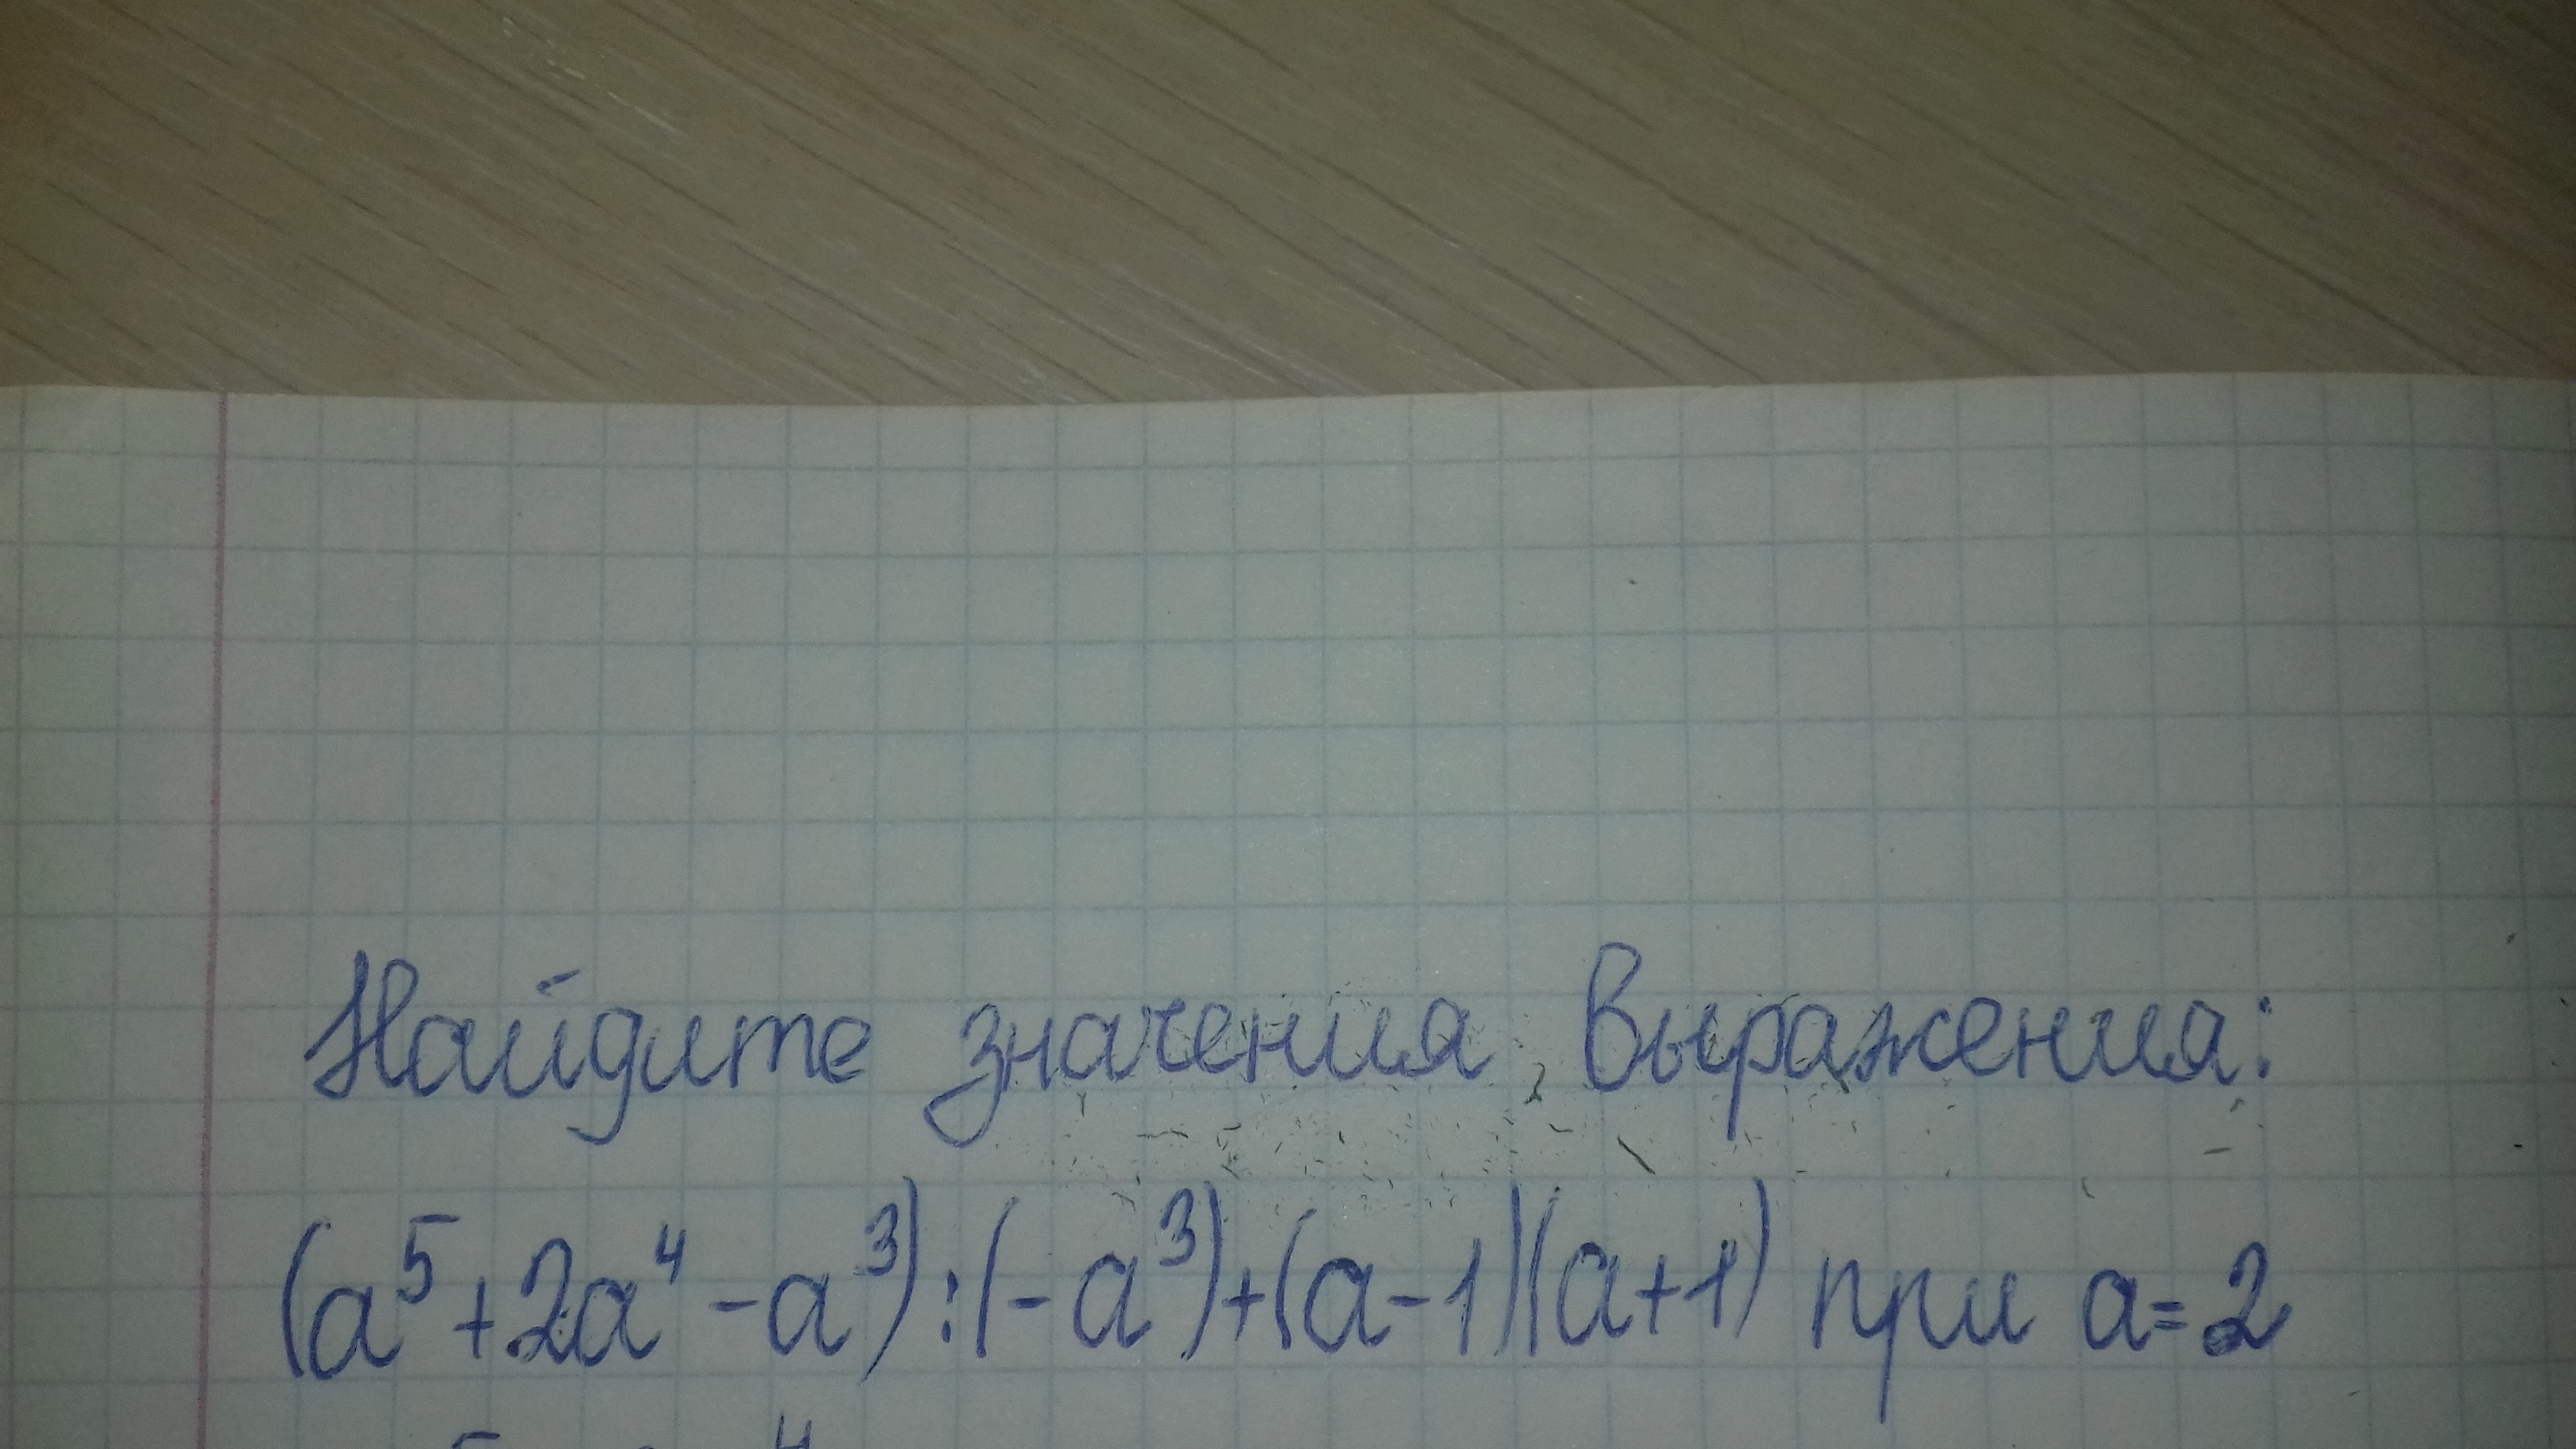 Найдите значения выражения:
(a⁵+2a⁴-a³):(-a³)+(a-1)(a+1) при a=2